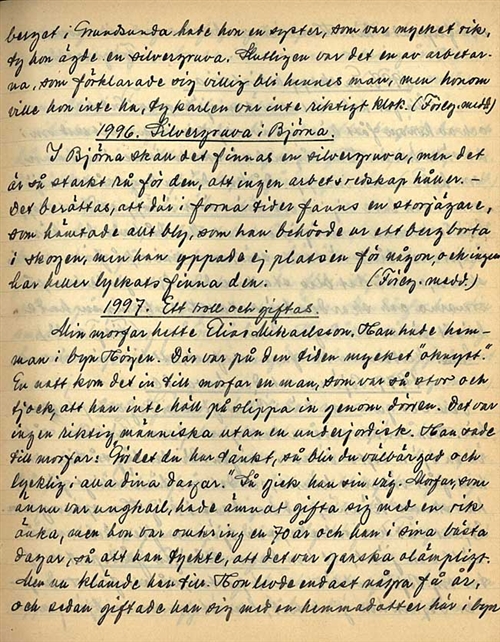 berget i Grundsunda hade hon en syster, som var mycket rik,
ty hon ägde en silvergruva. Slutligen var det en av arbetar-
na, som förklarade sig villig bli hennes man, men honom
ville hon inte ha, ty karlen var inte riktigt klok. (Föreg. medd.)
1996. Silvergruva i Björna.
I Björna skall det finnas en silvergruva, men det
är så starkt rå för den, att ingen arbetsredskap håller. –
Det berättas, att där i forna tider fanns en storjägare,
som hämtade allt bly, som han behövde ur ett berg borta
i skogen, men han yppade ej platsen för någon, och ingen
har heller lyckats finna den. (Föreg. medd.)
1997. Ett troll och giftas.
Min morfar hette Elias Mikaelsson. Han hade hem-
man i byn . Där var på den tiden mycket "oknytt."
En natt kom det in till morfar en man, som var så stor och
tjock, att han inte höll på slippa in genom dörren. Det var
ingen riktig människa utan en underjordisk. Han sade
till morfar: "Gör det du har tänkt, så blir du välbärgad och
lycklig i alla dina dagar." Så gick han sin väg. Morfar, som
ännu var ungkarl, hade ämnat gifta sig med en rik
änka, men hon var omkring en 70 år och han i sina bästa
dagar, så att han tyckte, att det var ganska olämpligt.
Men nu klämde han till. Hon levde endast några få år,
och sedan giftade han sig med en hemmadotter här i byn